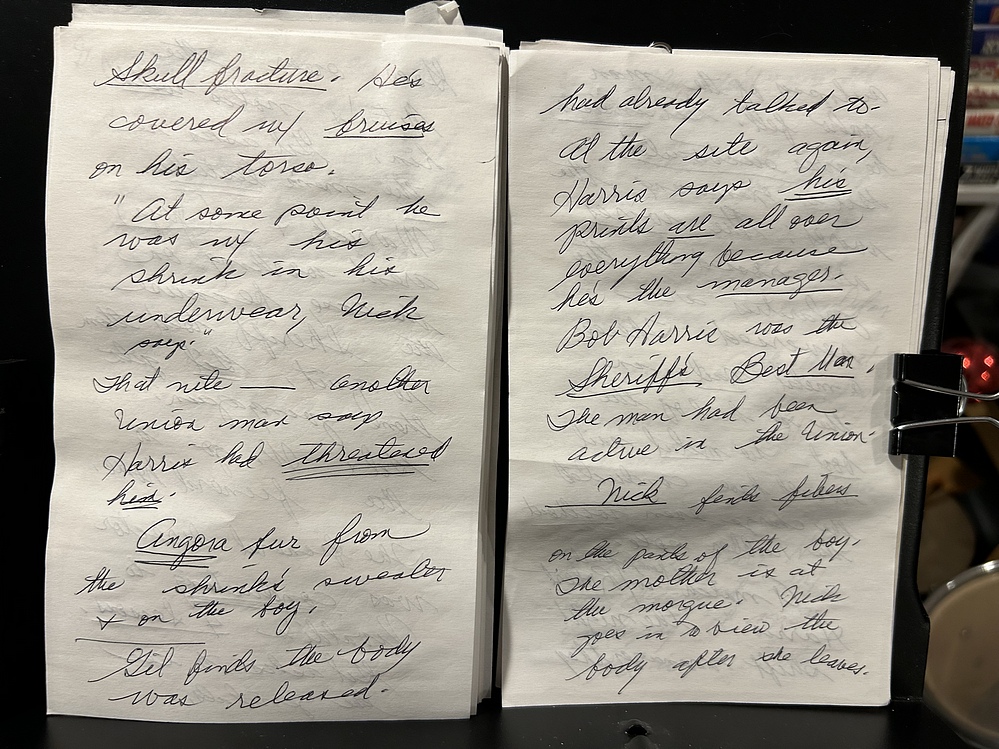 Skull fracture. He's
covered w/ bruises
on his torso.
"At some point he
was w/ his
shrink in his
underwear, Nick
says."
That nite — another
Union man says
Harris had threatened
him.
Angora fur from
the shrink's sweater
& on the boy.
Gil finds the body
was released.
had already talked to.
At the site again,
Harris says his
prints are all over
everything because
he's the manager.
Bob Harris was the
Sheriff's Best Man.
The man had been
active in the Union.
Nick finds fibers
on the pants of the boy.
The mother is at
the morgue. Nick
goes in to view the
body after she leaves.